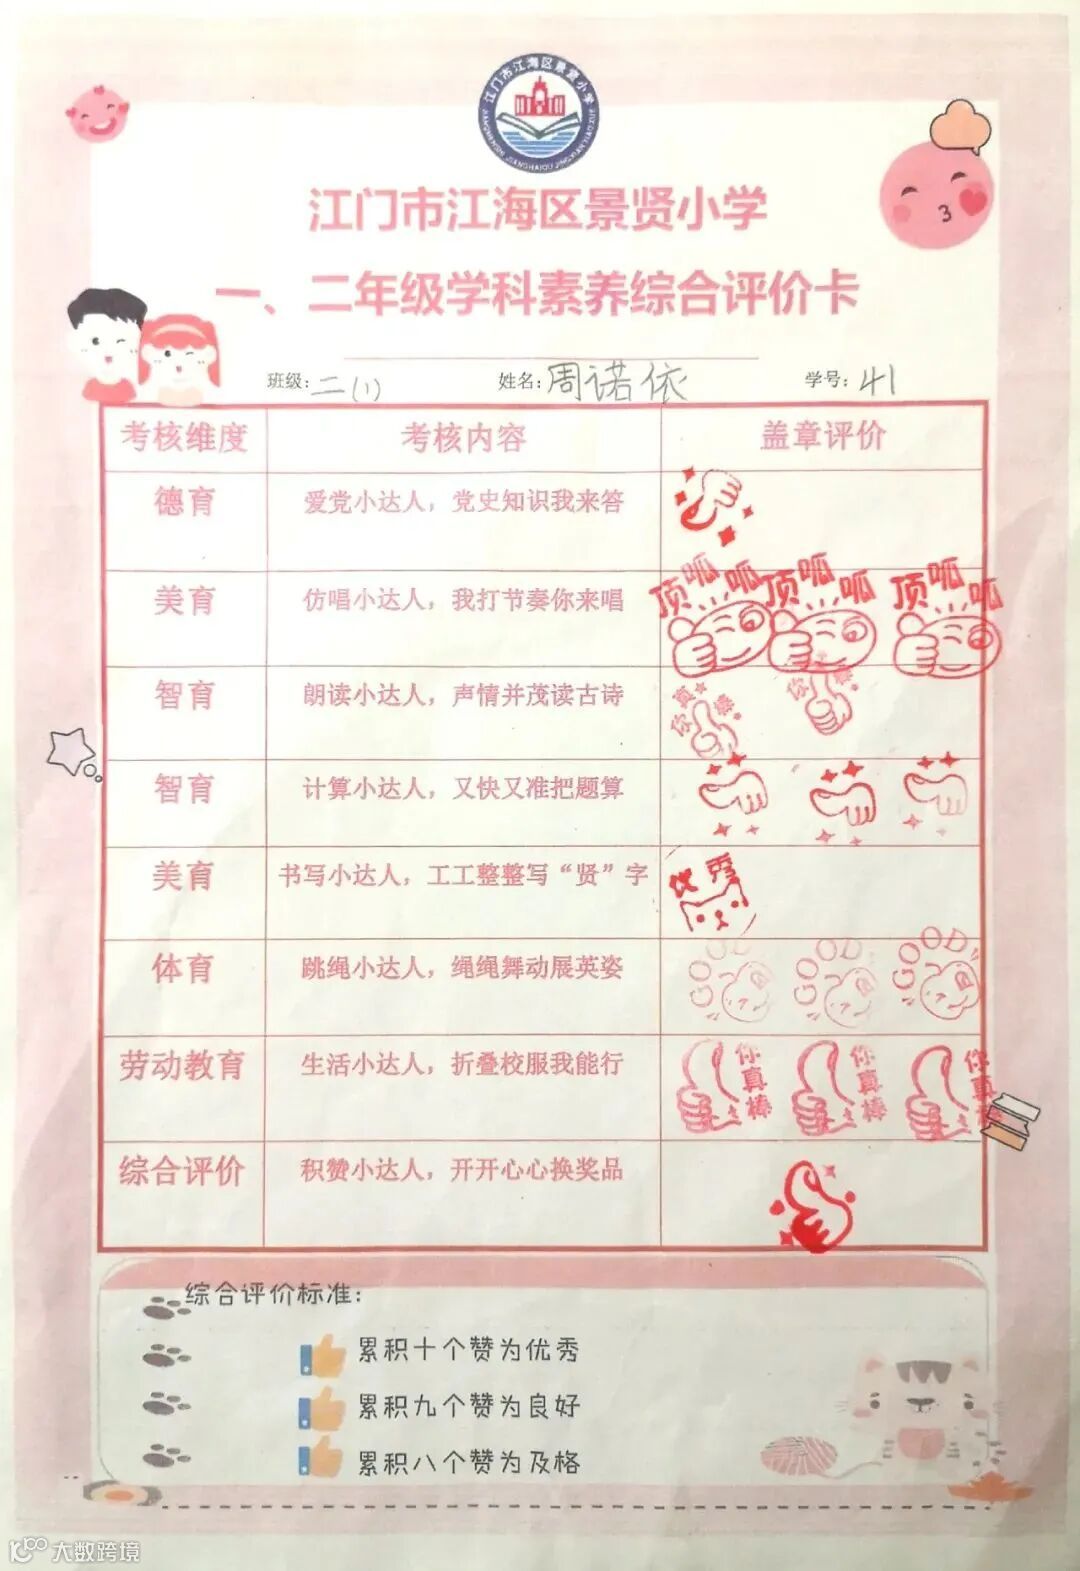 江门市江海区景贤小学
江门市江海区景贤小学
一、二年级学科素养综合评价卡
班级：二(1) 姓名：周诺依 学号：41
考核维度 考核内容 盖章评价
德育 爱党小达人，党史知识我来答
美育 仿唱小达人，我打节奏你来唱 顶呱呱 顶呱呱 顶呱呱
智育 朗读小达人，声情并茂读古诗 你真棒 你真棒
智育 计算小达人，又快又准把题算
美育 书写小达人，工工整整写“贤”字 优秀
体育 跳绳小达人，绳绳舞动展英姿 GOOD GOOD GOOD
劳动教育 生活小达人，折叠校服我能行 你真棒 你真棒 你真棒
综合评价 积赞小达人，开开心心换奖品
综合评价标准：
累积十个赞为优秀
累积九个赞为良好
累积八个赞为及格
大数跨境